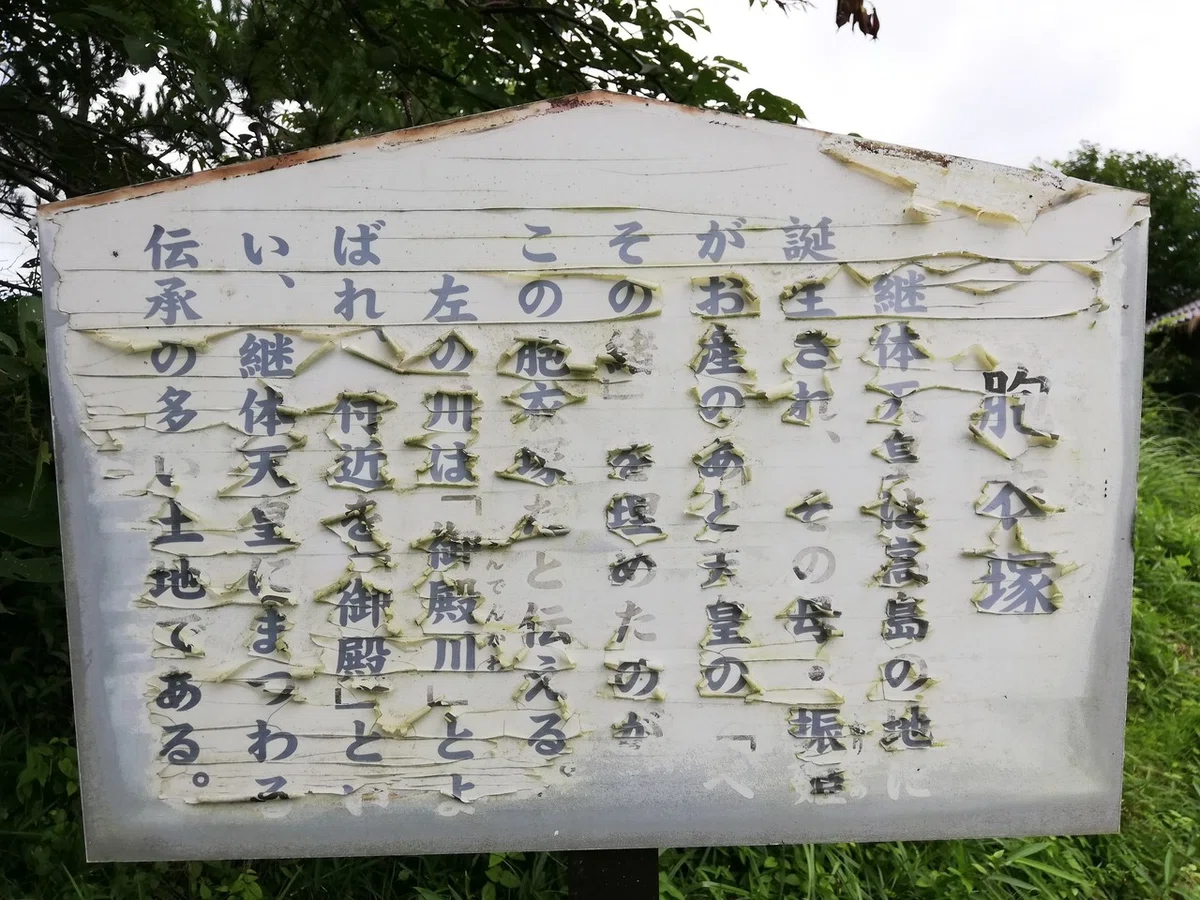 胞衣塚
継体天皇は高島の地に
誕生され、その母・振姫
がお産のあと天皇の「へ
その緒」を埋めたのが
この胞衣塚だと伝える。
左の川は「御殿川」とよ
んでんがわ
ばれ、付近を「御殿」とい
い、継体天皇にまつわる
伝承の多い土地である。